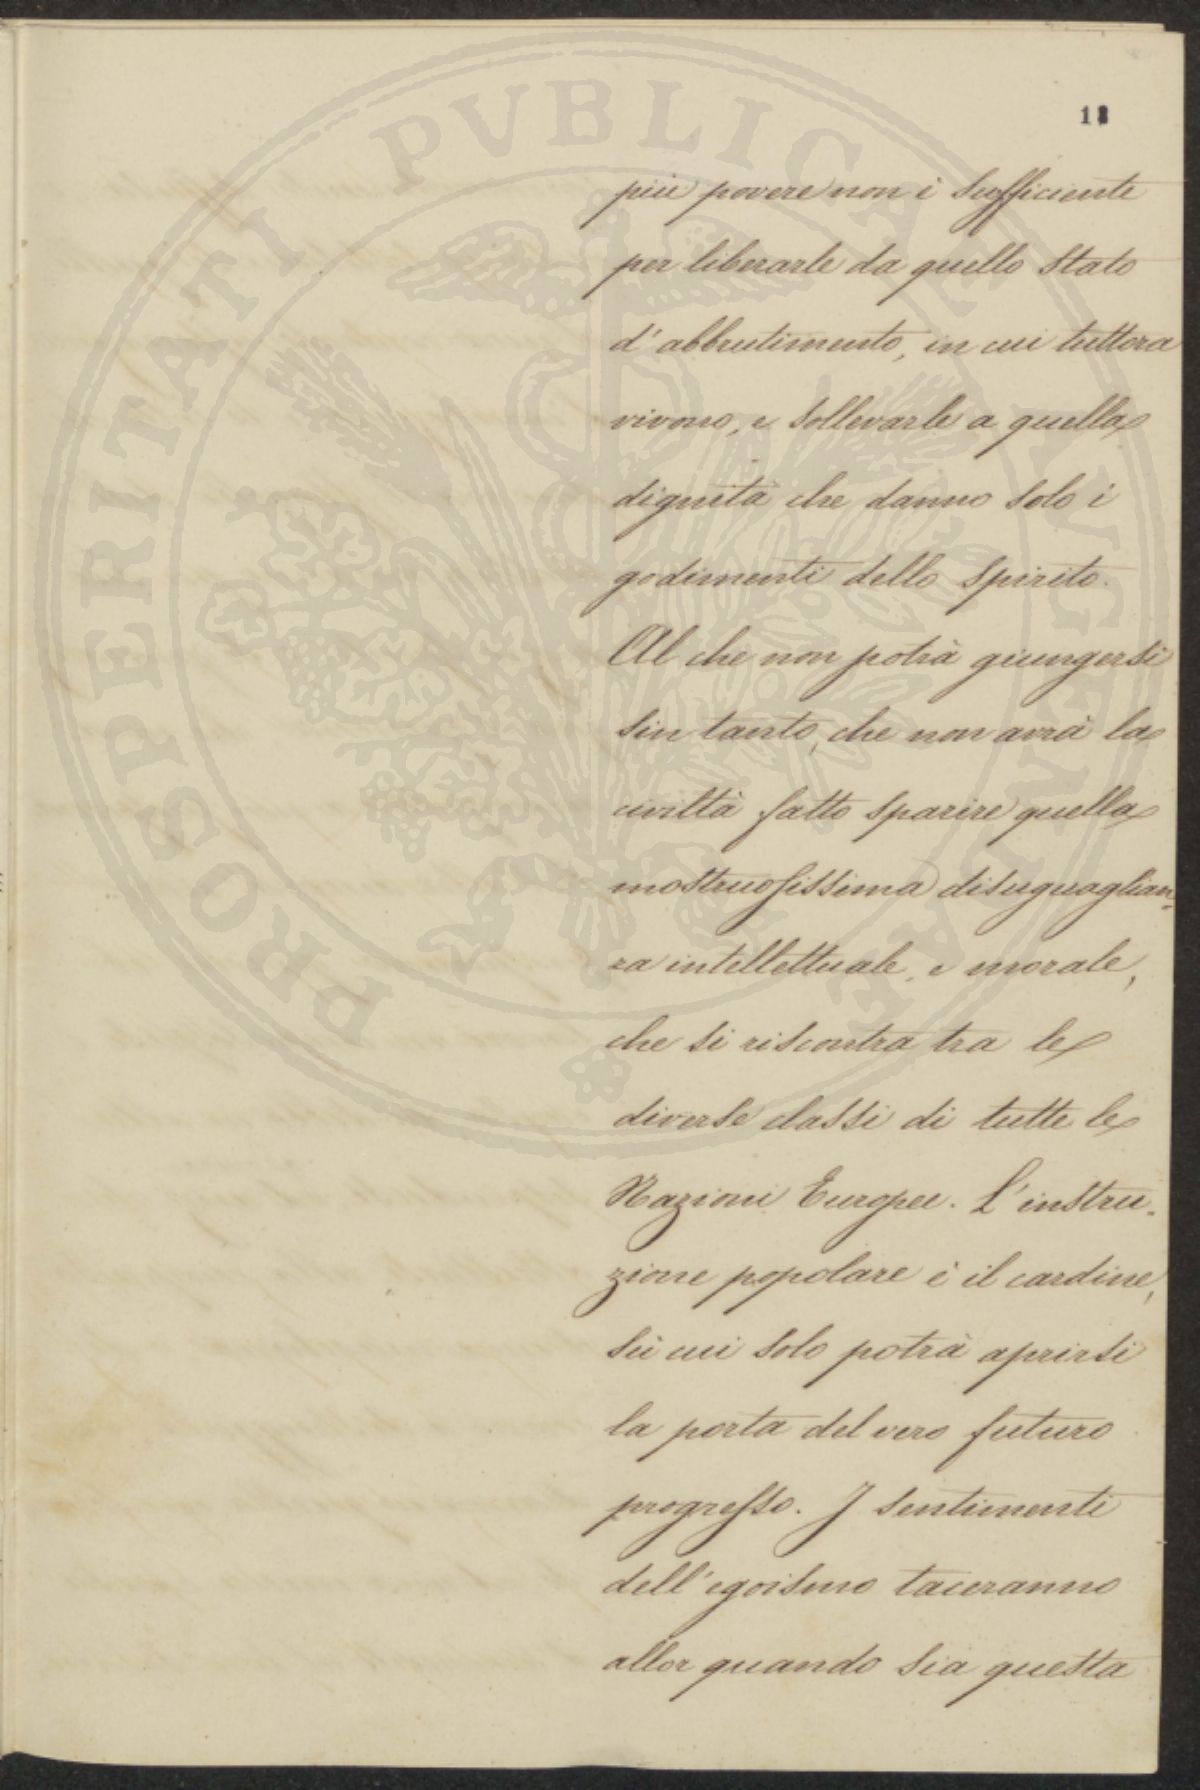 più povere non è sufficiente
per liberarle da quello stato
d'abbrutimento, in cui tuttora
vivono, e sollevarle a quella
dignità che danno solo i
godimenti dello spirito.
Al che non potrà giungersi
sin tanto, che non avrà la
civiltà fatto sparire quella
mostruosissima disuguaglian=
za intellettuale, e morale,
che si riscontra tra le
diverse classi di tutte le
Nazioni Europee. L'instru-
zione popolare è il cardine,
sù cui solo potrà aprirsi
la porta del vero futuro
progresso. I sentimenti
dell'egoismo taceranno
allor quando sia questa
PROSPERITATI PVBLICAE AVGENDAE